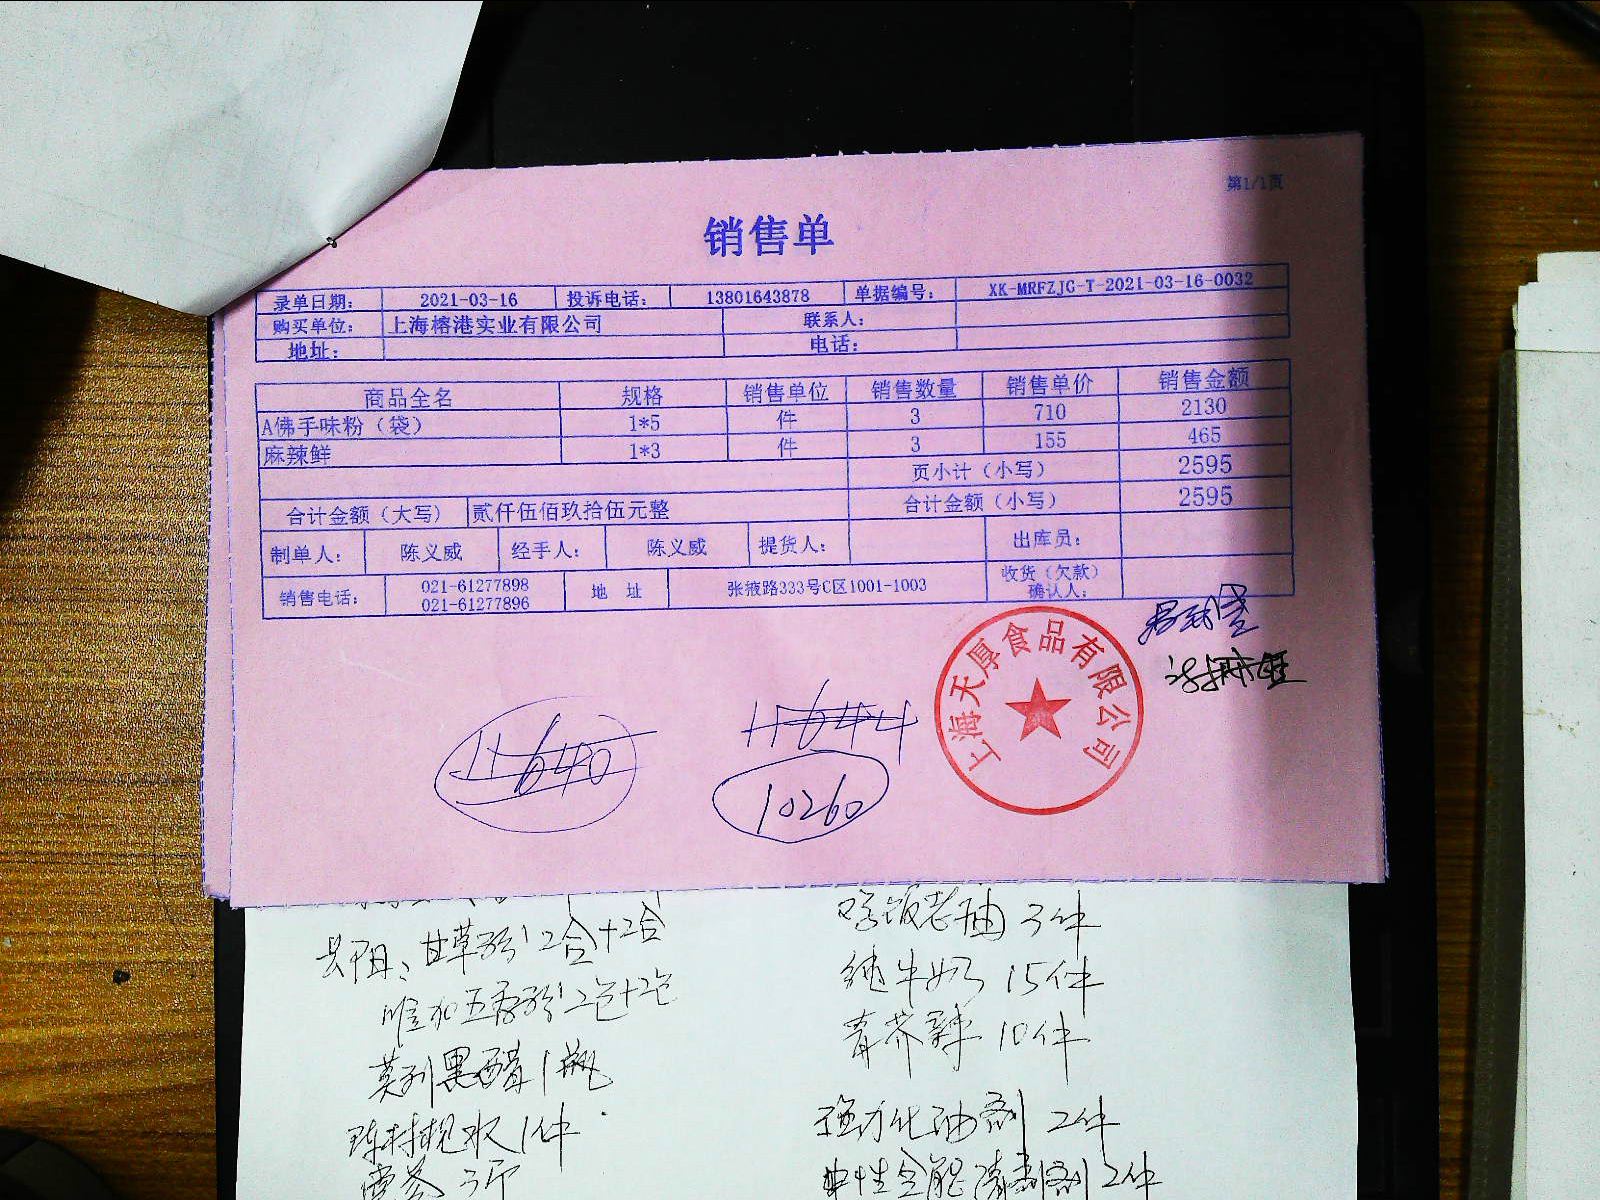 第1/1页
销售单
录单日期: 2021-03-16 投诉电话: 13801643878 单据编号: XK-MRFZJC-T-2021-03-16-0032
购买单位: 上海榕港实业有限公司 联系人:
地址: 电话:
商品全名 规格 销售单位 销售数量 销售单价 销售金额
A佛手味粉（袋） 1*5 件 3 710 2130
麻辣鲜 1*3 件 3 155 465
页小计（小写） 2595
合计金额（大写） 贰仟伍佰玖拾伍元整 合计金额（小写） 2595
制单人: 陈义威 经手人: 陈义威 提货人: 出库员:
销售电话: 021-61277898 地 址 张掖路333号C区1001-1003 收货（欠款）
021-61277896 确认人:
上海天厚食品有限公司
11640 11644
10260
甘草粉 2合+2合
五香粉 2包+2包
黑醋 1瓶
陈村枧水 1件
老抽 3件
纯牛奶 15件
青芥辣 10件
强力化油剂 2件
全能清洁剂 2件